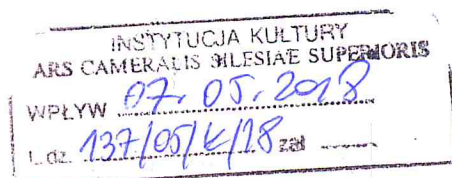 INSTYTUCJA KULTURY
ARS CAMERALIS SILESIAE SUPERIORIS
WPŁYW 07. 05. 2018
L. dz. 137/05/K/18 zał